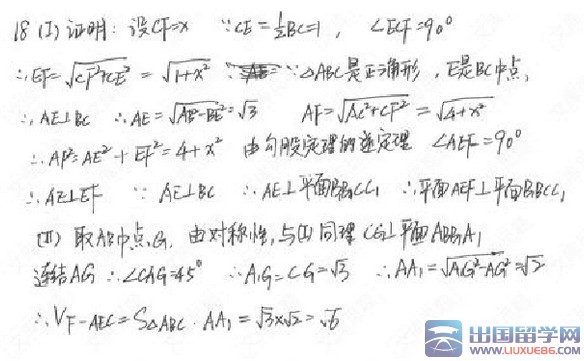 18 (I) 证明：设CF=x ∵CE=½BC=1，∠ECF=90°
∴EF=√CF²+CE² = √1+x² ∵△ABC是正三角形，E是BC中点，
∴AE⊥BC ∴AE=√AB²-BE²=√3 AF=√AC²+CF² = √4+x²
∴AF²=AE²+EF²=4+x² 由勾股定理的逆定理 ∠AEF=90°
∴AE⊥EF ∵AE⊥BC ∴AE⊥平面B₁BCC₁ ∴平面AEF⊥平面B₁BCC₁
(II) 取AB中点G，由对称性，与(I)同理 CG⊥平面ABB₁A₁
连结A₁G ∴∠CA₁G=45° ∴A₁G=CG=√3 ∴AA₁=√A₁G²-AG²=√2
∴V F-AEC=S△ABC·AA₁=√3×√2=√6
出国留学网
WWW.LIUXUE86.COM